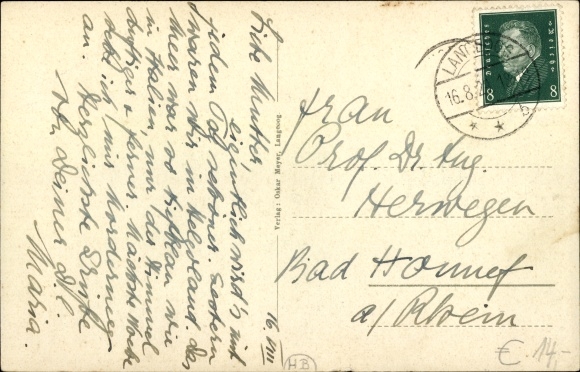 16. VIII
Liebe Mutter,
Eigentlich wird's mit
jedem Tag schöner. Gestern
waren wir in Helgoland. Das
Meer war so tiefblau wie
in Italien nur der Himmel
duftiger & ferner. Nächste Woche
will ich mir Norderney
an. Herzlichste Grüße
Deiner
Maria.
Verlag: Oskar Meyer, Langeoog.
LANGEOOG
16.8.2
b
Deutsches Reich
8 8
Frau
Prof. Dr. Aug.
Herwegen
Bad Honnef
a/Rhein
HB
€ 14,-